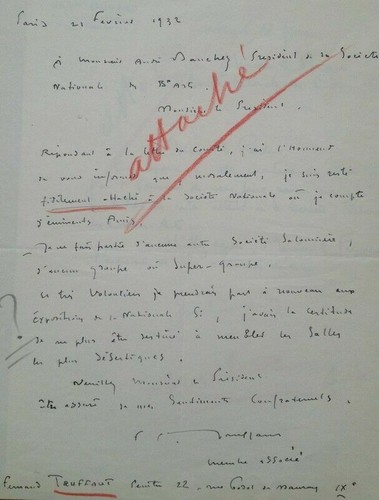 Paris 21 Février 1932
à Monsieur André Dauchez Président de la Société
Nationale des Bx Arts.
Monsieur le Président.
attaché
Répondant à la lettre du Comité, j'ai l'honneur
de vous informer que, moralement, je suis resté
fidèlement attaché à la Société Nationale où je compte
d'éminents Amis.
Je ne fais partie d'aucune autre Société Salonnière,
d'aucun groupe ou Super-groupe.
et très volontiers je prendrais part à nouveau aux
?
Expositions de la Nationale Si, j'avais la Certitude
de ne plus être destiné à meubler les Salles
les plus Désertiques.
Veuillez Monsieur le Président
être assuré de mes Sentiments Confraternels.
membre associé
Fernand TRUFFAUT Peintre 22 rue IXe